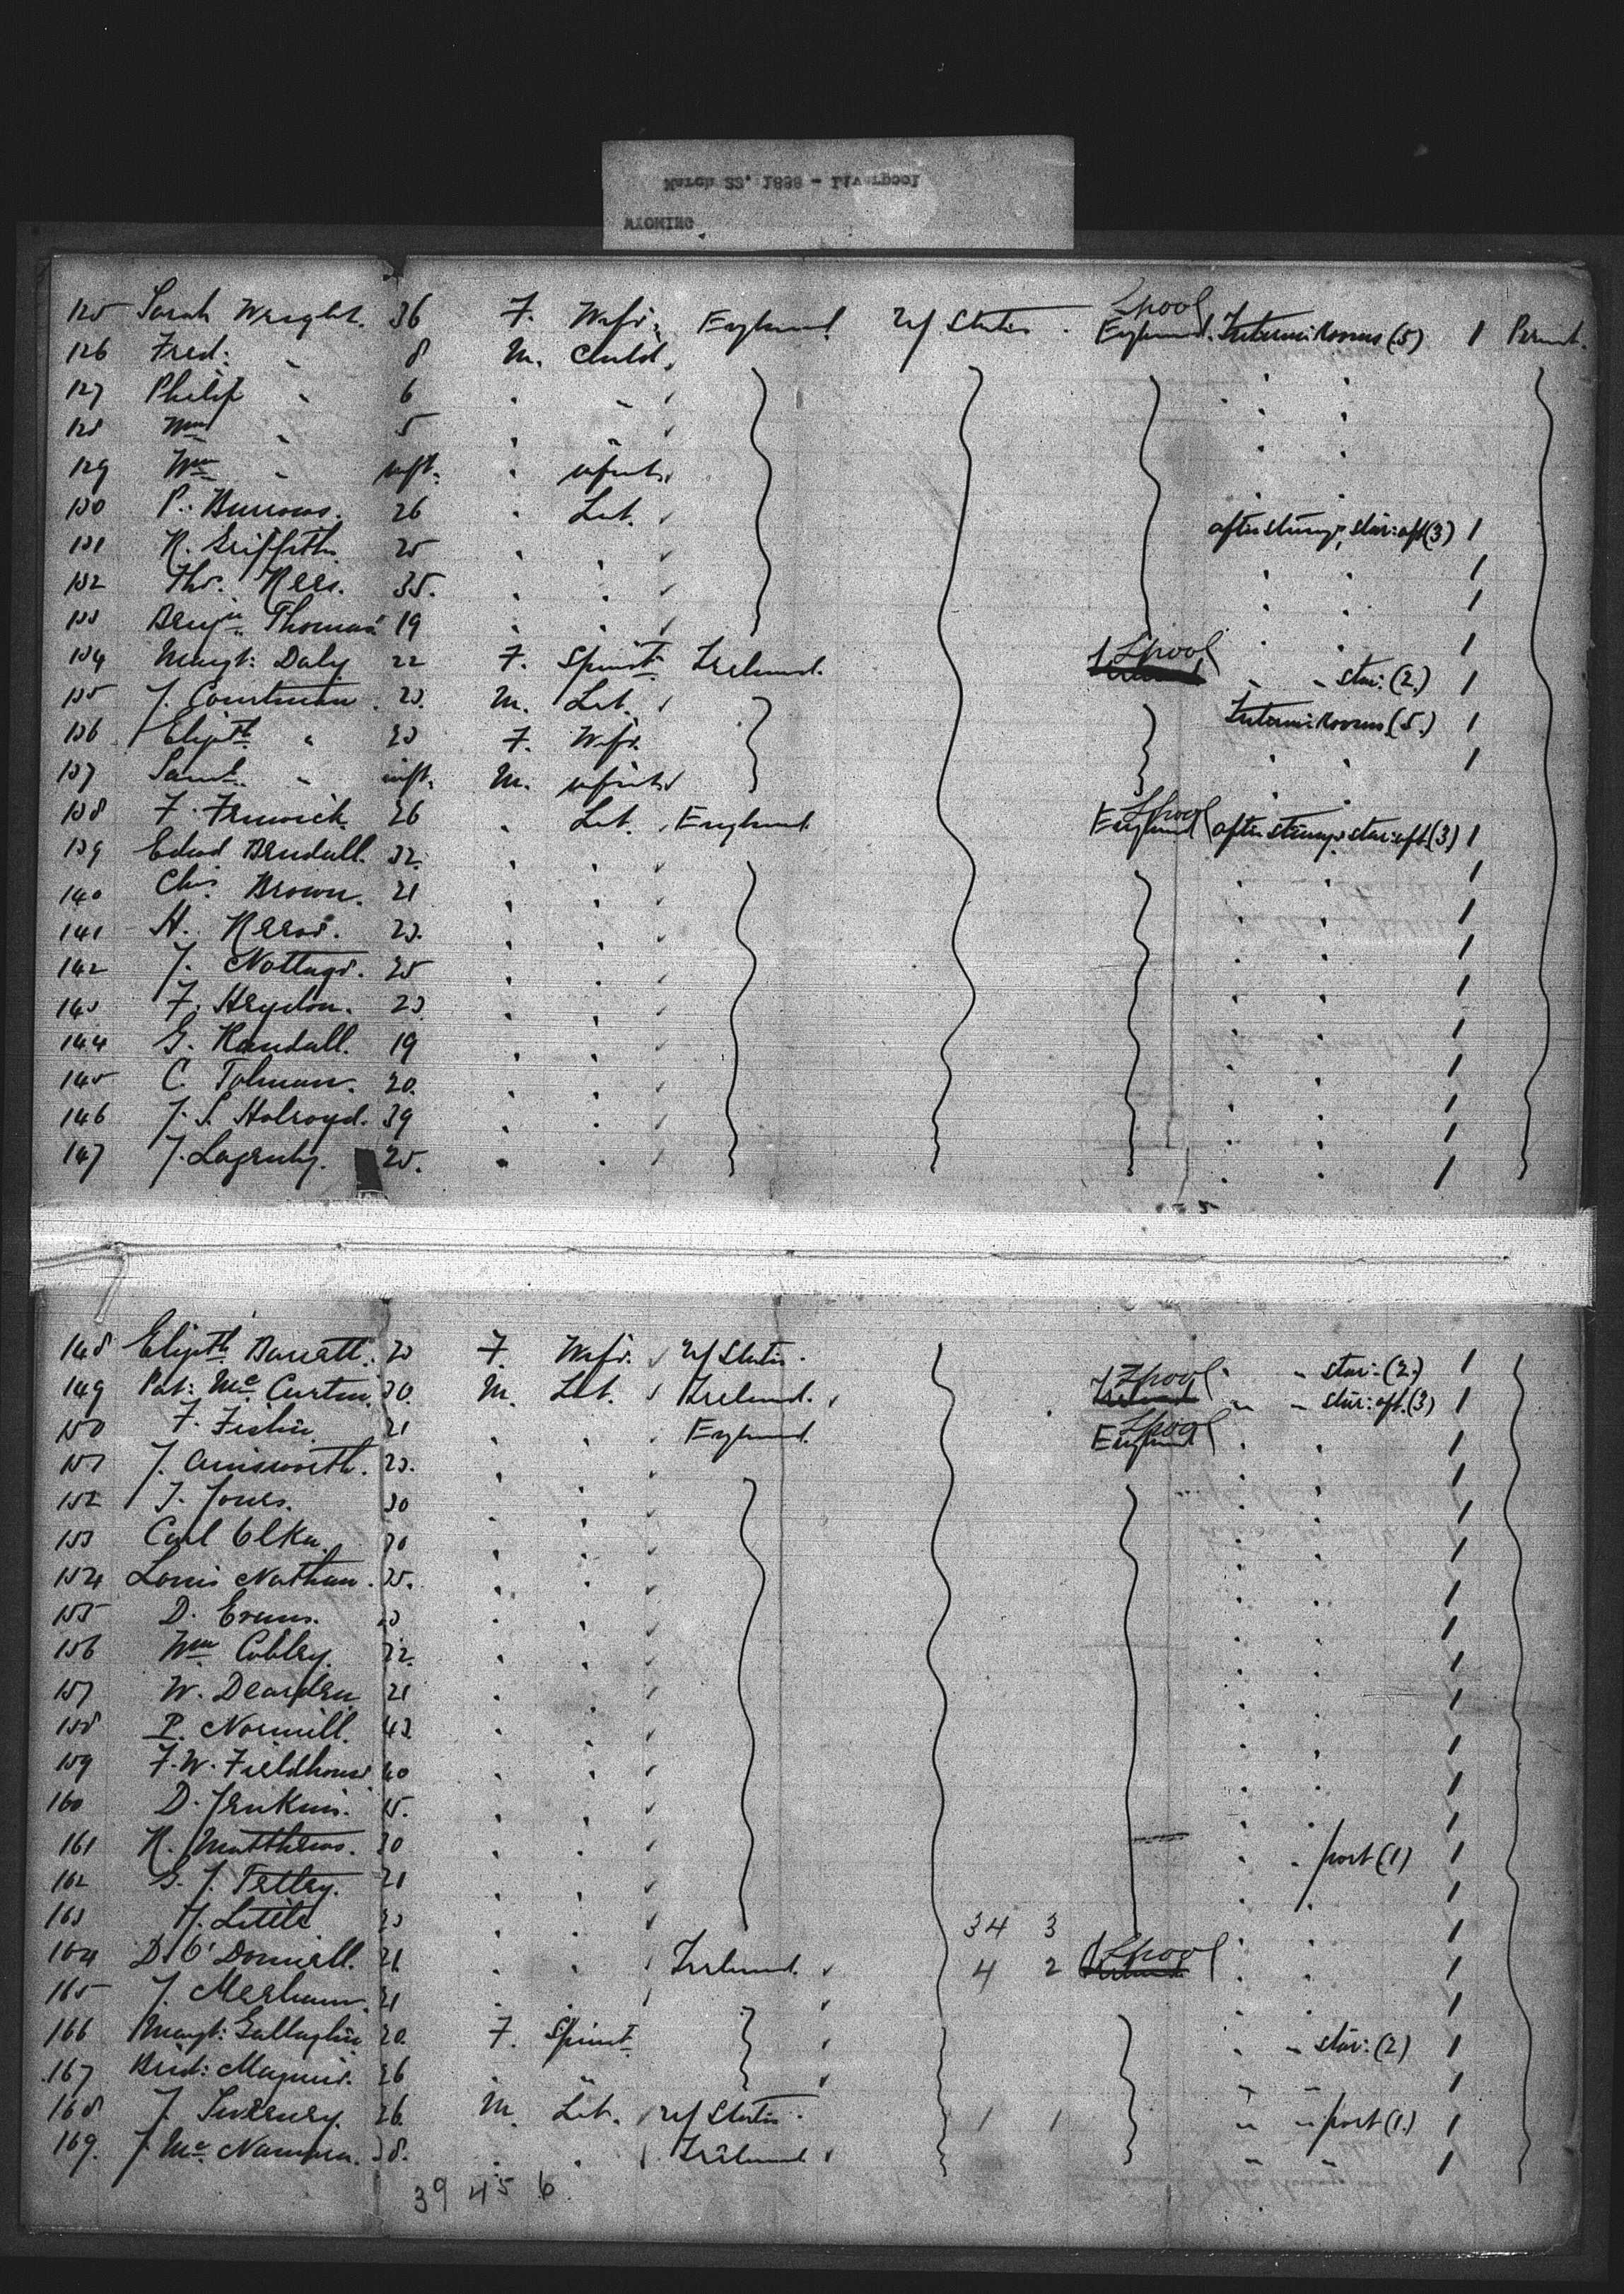 WYOMING
March 22, 1888 - Liverpool
125 Sarah Wright. 36 F. Wife England U/States. L'pool England. Interm: Rooms (5) 1 Permt.
126 Fred: " 8 M. Child
127 Philip " 6 " "
128 5 " "
129 Wm " inft. " infant
130 P. Burrows. 26 " Lab. after steerage, star: aft (3) 1
131 R. Griffiths 25 " " 1
132 Thos. Rees. 35. " " 1
133 Benjn. Thomas 19 " " 1
134 Margt: Daly 22 F. Spinst Ireland. L'pool " " star: (2.) 1
135 J. Courtman 23. M. Lab. Interm: Rooms (5.) 1
136 Elizth " 23 F. Wife 1
137 Saml. " inft. M. infant
138 F. Fenwick. 26 " Lab. England L'pool England after steerage star: aft (3) 1
139 Edwd Bendall. 32. " " 1
140 Chs. Brown. 21 " " 1
141 H. 23. " " 1
142 J. Nottage. 25 " " 1
143 F. Heydon. 23. " " 1
144 G. Randall. 19 " " 1
145 C. Tolman. 20. " " 1
146 J. S. Holroyd. 39 " " 1
147 J. 25. " " 1
148 Elizth Barratt. 23 F. Wife. U/States. " star: (2.) 1
149 Pat: McCurtin 30. M. Lab. Ireland. L'pool " " star: aft. (3) 1
150 F. Fisher. 21 " " England. L'pool England " " 1
151 J. Ainsworth. 23. " " 1
152 J. Jones. 30 " " 1
153 Carl 30 " " 1
154 Louis Nathan. 25. " " 1
155 D. Evans. 23 " " 1
156 Wm Cobley. 22. " " 1
157 W. Dearden 21 " " 1
158 P. Normill. 43. " " 1
159 F. W. Fieldhouse 40 " " 1
160 D. Jenkins. 15. " " 1
161 R. Matthews. 30 " " " " port (1) 1
162 J. Tetley. 21 " " 1
163 H. Little 23 " " 34 3 1
164 D. O'Donnell. 21 " " Ireland. 4 2 L'pool " " 1
165 J. Meehan. 21 " " 1
166 Margt: Gallagher 20. F. Spinst " " star: (2) 1
167 Brid: Maguire. 26 " " 1
168 J. Sweeney. 26. M. Lab. U/States. 1 1 " " port (1.) 1
169. J. McNamara. 38. " " Ireland " " 1
39 45 6